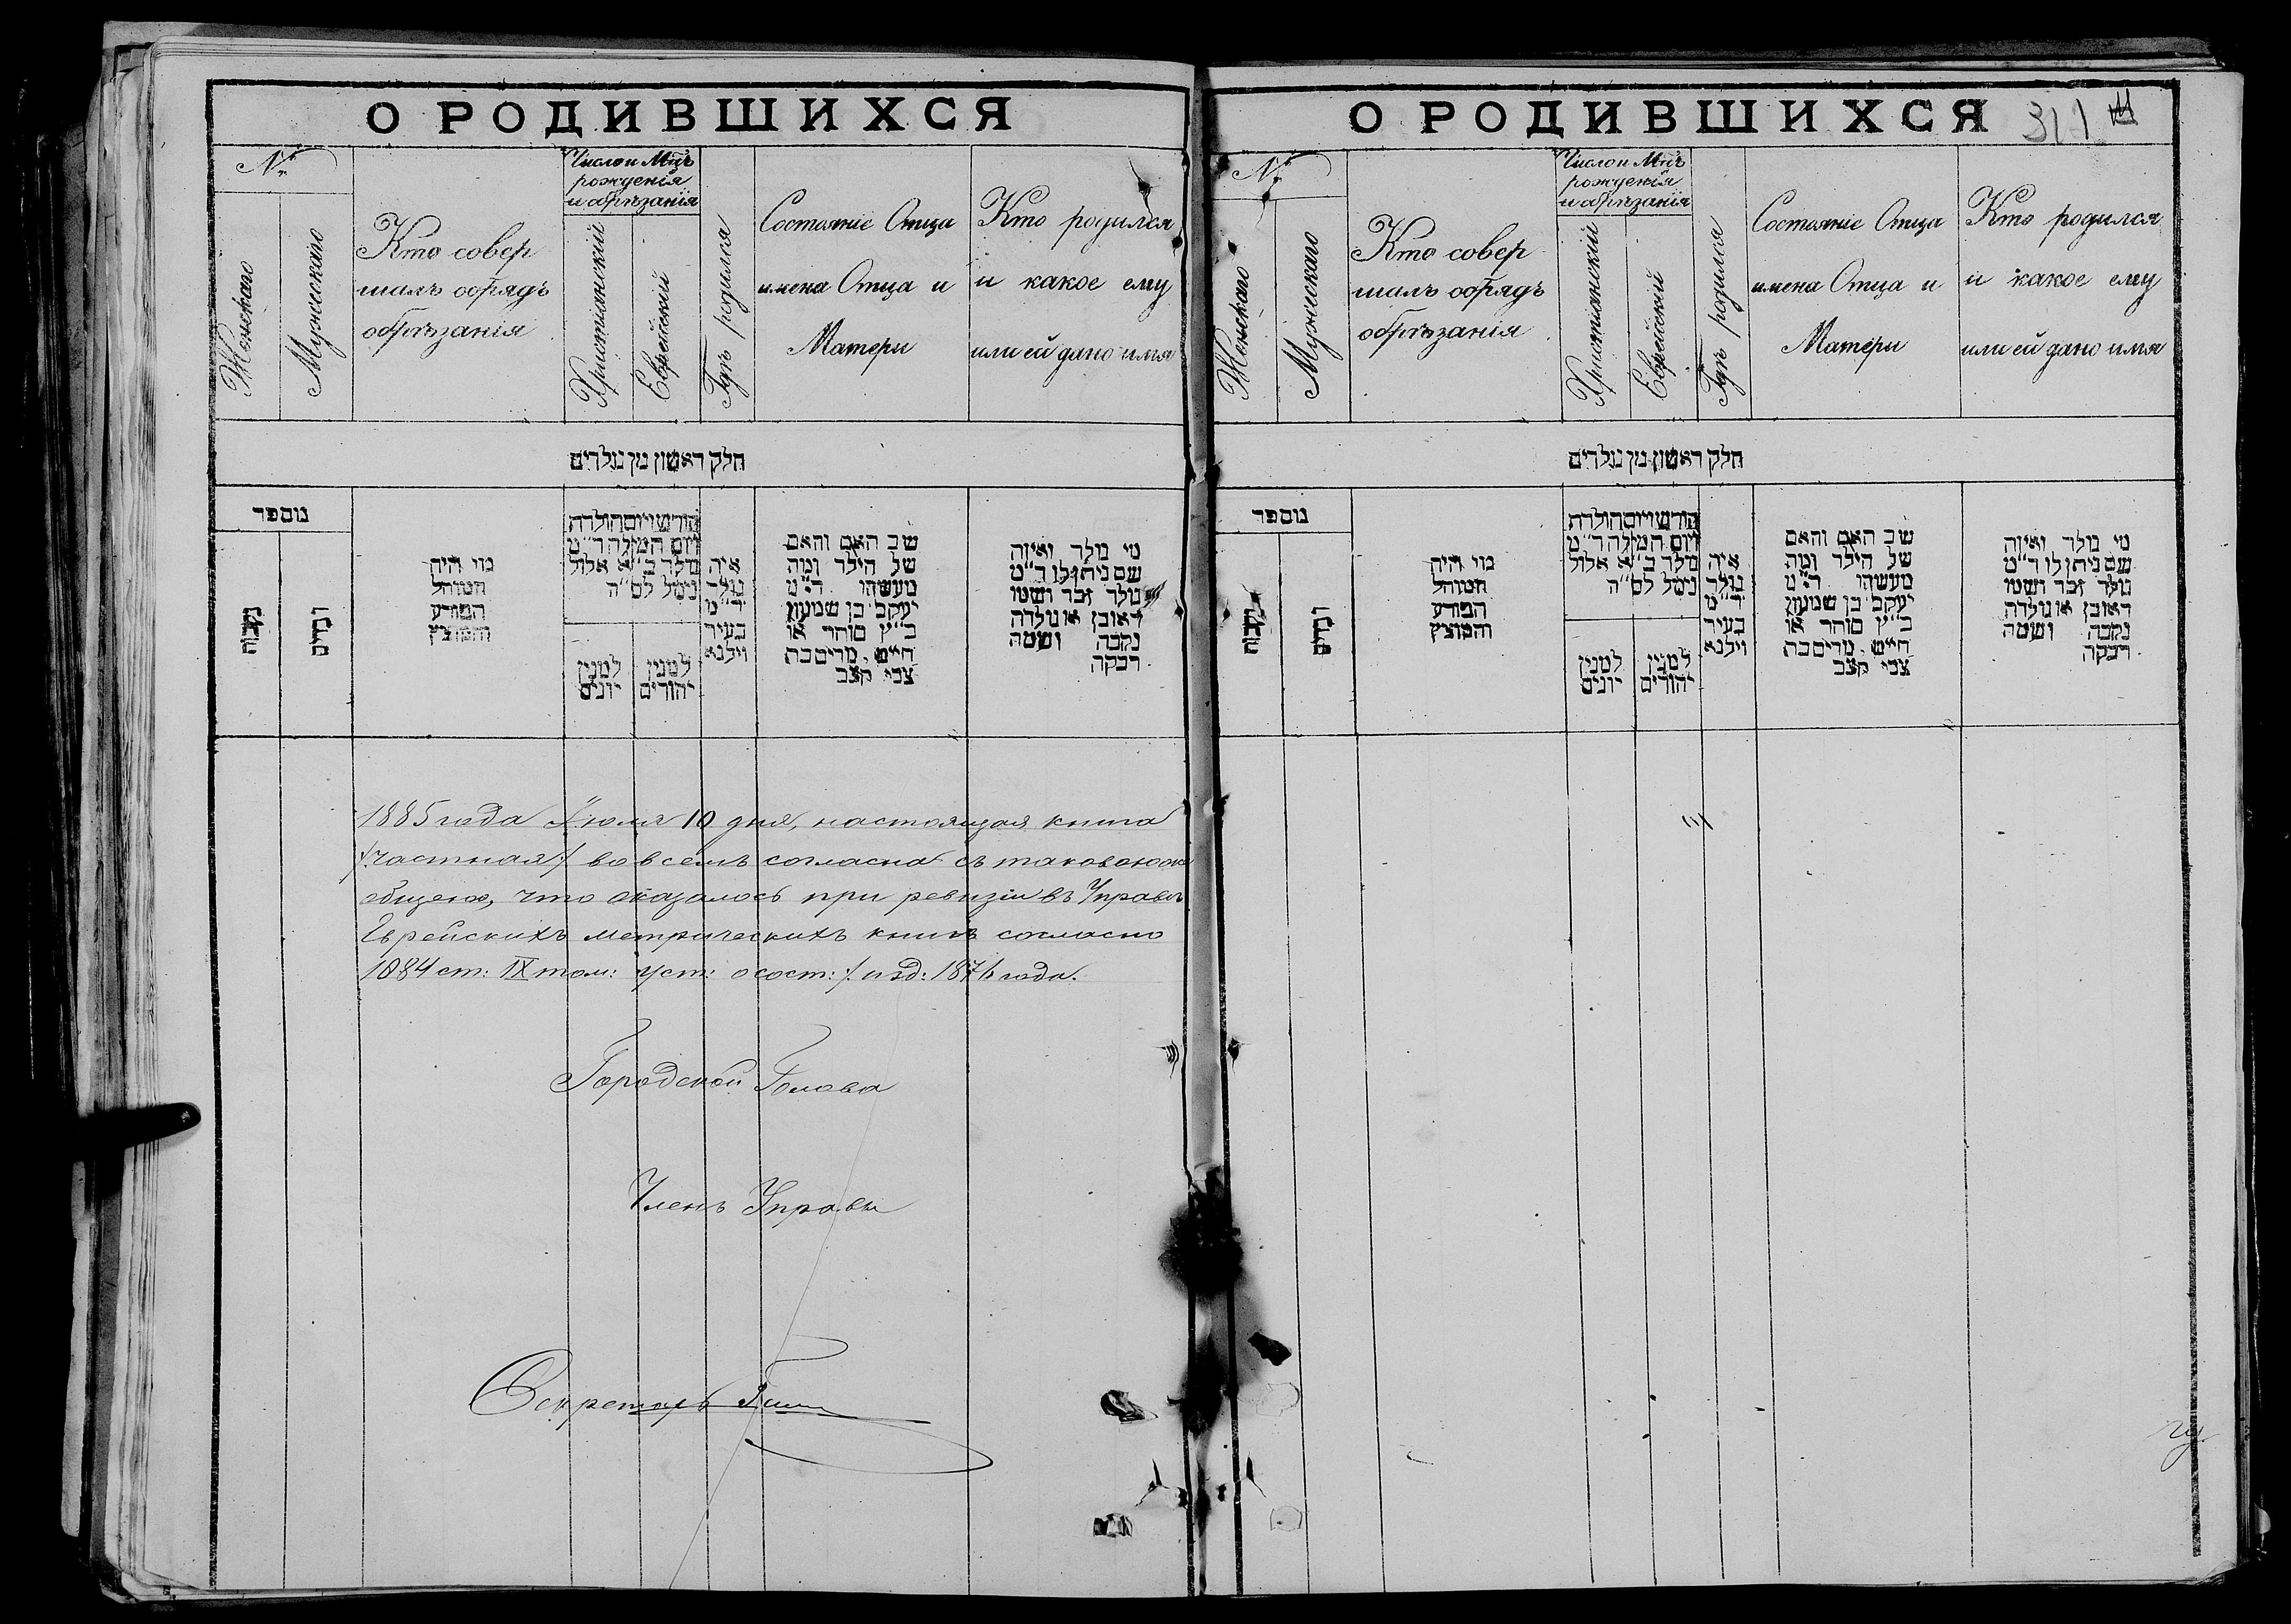 О РОДИВШИХСЯ
№
Женскаго
Мужескаго
Кто совер
шалъ обрядъ
обрѣзанія
Число и Мцъ
рожденія
и обрѣзанія
Христіянскій
Еврейскій
Гдѣ родился
Состояніе Отца
имена Отца и
Матери
Кто родился
и какое ему
или ей дано имя
חלק ראשון מן נולדים
מספר
נקבה
זכרים
מי היה
המוהל
הפורע
והמוצץ
חודש ויום הולדת
ויום המילה ד״מ
נולד ב״א אלול
נימל לס״ה
למנין
יונים
למנין
יהודים
איה
נולד
ד״מ
בעיר
וילנא
שב האם והאם
של הילד ומה
מעשהו ד״מ
יעקב בן שמעון
כ״ץ סוחר או
חייט, מרים בת
צבי קצב
מי נולד ואיזה
שם ניתן לו ד״מ
נולד זכר ושמו
ראובן או נולדה
נקבה ושמה
רבקה
1885 года Іюля 10 дня, настоящая книга
/:частная:/ во всемъ согласна съ таковою
общею, что оказалось при ревизіи въ Управѣ
Еврейскихъ метрическихъ книгъ согласно
1084 ст: IX том: уст: о сост: /. изд: 1876 года.
Городской Голова
Членъ Управы
Секретарь
О РОДИВШИХСЯ
311
№
Женскаго
Мужескаго
Кто совер
шалъ обрядъ
обрѣзанія
Число и Мцъ
рожденія
и обрѣзанія
Христіянскій
Еврейскій
Гдѣ родился
Состояніе Отца
имена Отца и
Матери
Кто родился
и какое ему
или ей дано имя
חלק ראשון מן נולדים
מספר
נקבה
זכרים
מי היה
המוהל
הפורע
והמוצץ
חודש ויום הולדת
ויום המילה ד״מ
נולד ב״א אלול
נימל לס״ה
למנין
יונים
למנין
יהודים
איה
נולד
ד״מ
בעיר
וילנא
שב האם והאם
של הילד ומה
מעשהו ד״מ
יעקב בן שמעון
כ״ץ סוחר או
חייט, מרים בת
צבי קצב
מי נולד ואיזה
שם ניתן לו ד״מ
נולד זכר ושמו
ראובן או נולדה
נקבה ושמה
רבקה